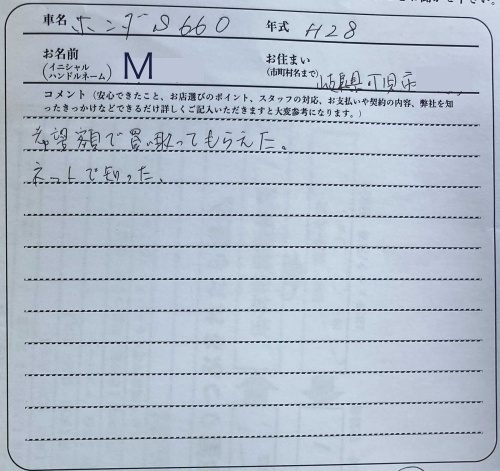 車名 ホンダS660 年式 H28
お名前
(イニシャル
ハンドルネーム) M お住まい
(市町村名まで) 岐阜県可児市
コメント（安心できたこと、お店選びのポイント、スタッフの対応、お支払いや契約の内容、弊社を知
ったきっかけなどできるだけ詳しくご記入いただきますと大変参考になります。）
希望額で買い取ってもらえた。
ネットで知った。